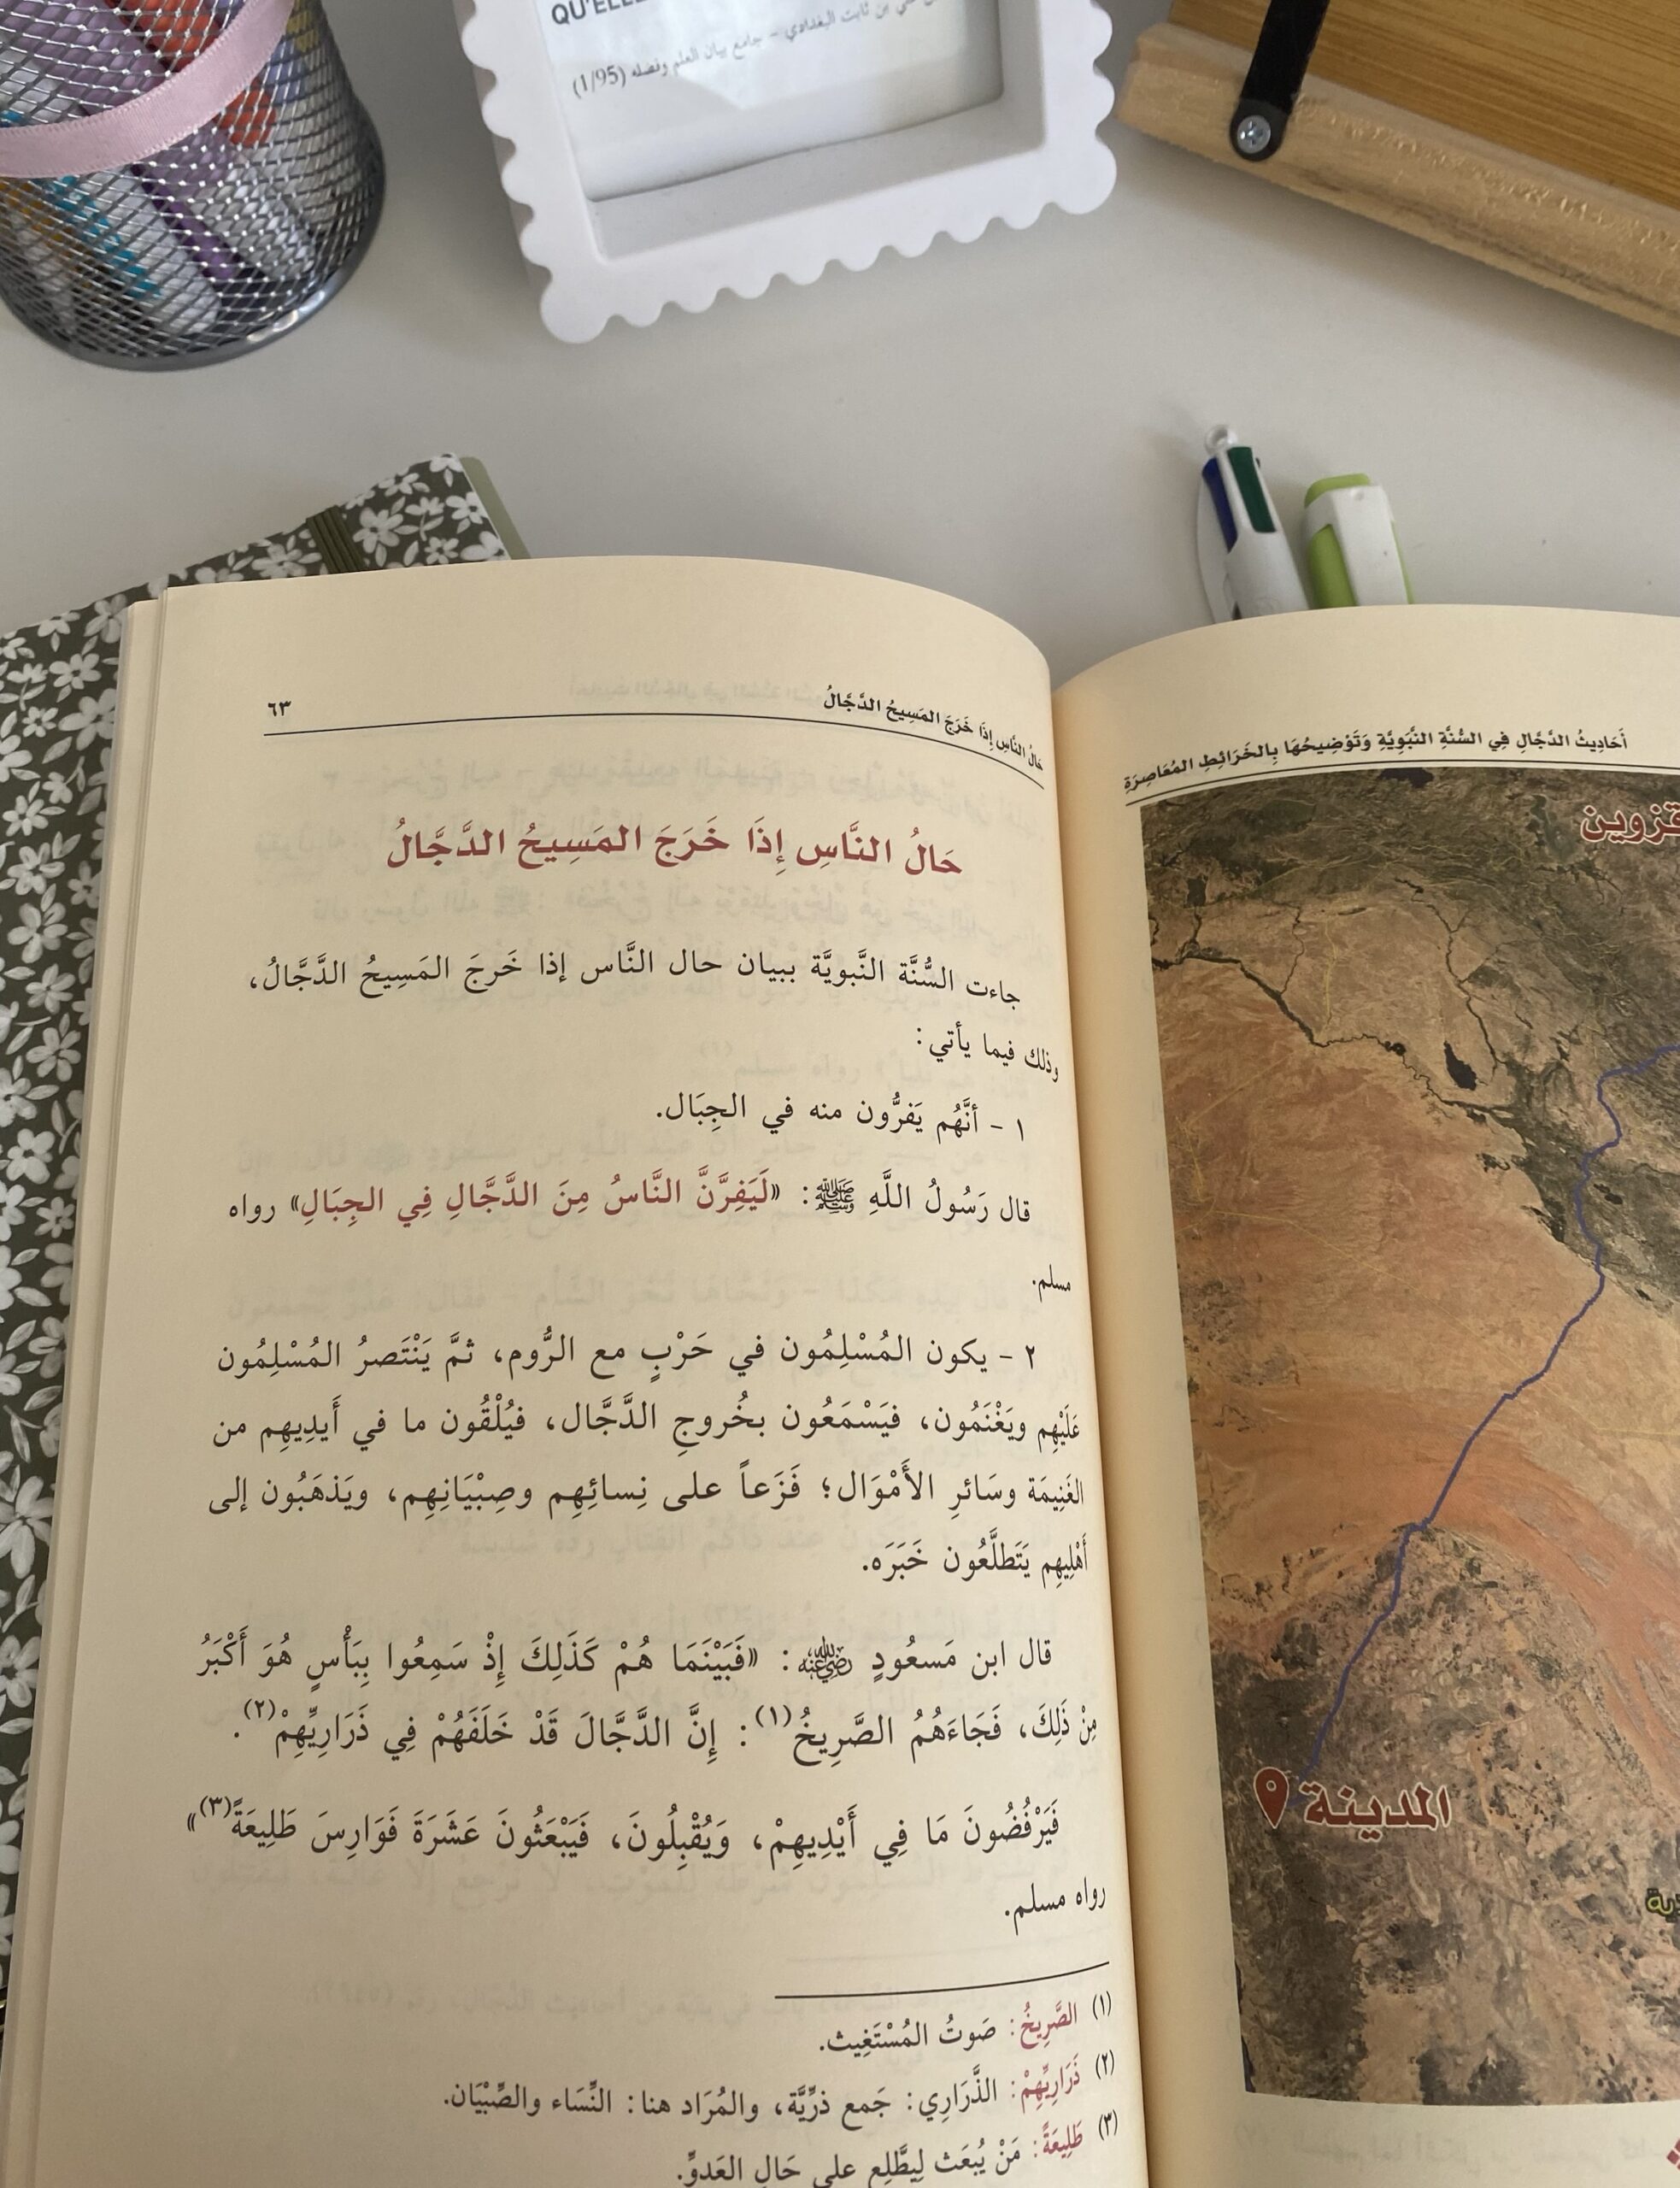 QU'ELLE
بن ثابت البغدادي - جامع بيان العلم وفضله (1/95)
أَحَادِيثُ الدَّجَّالِ فِي السُّنَّةِ النَّبَوِيَّةِ وَتَوْضِيحُهَا بِالخَرَائِطِ المُعَاصِرَةِ
قزوين
المدينة
حَالُ النَّاسِ إِذَا خَرَجَ المَسِيحُ الدَّجَّالُ
٦٣
حَالُ النَّاسِ إِذَا خَرَجَ المَسِيحُ الدَّجَّالُ
جاءت السُّنَّة النَّبويَّة ببيان حال النَّاس إذا خَرجَ المَسِيحُ الدَّجَّالُ،
وذلك فيما يأتي:
١ - أنَّهُم يَفرُّون منه في الجِبَال.
قال رَسُولُ اللَّهِ ﷺ: «لَيَفِرَّنَّ النَّاسُ مِنَ الدَّجَّالِ فِي الجِبَالِ» رواه
مسلم.
٢ - يكون المُسْلِمُون في حَرْبٍ مع الرُّوم، ثمَّ يَنْتَصرُ المُسْلِمُون
عَلَيْهِم ويَغْنَمُون، فيَسْمَعُون بخُروجِ الدَّجَّال، فيُلْقُون ما في أَيدِيهِم من
الغَنِيمَة وسَائرِ الأَمْوَال؛ فَزَعاً على نِسائِهِم وصِبْيَانِهِم، ويَذهَبُون إلى
أَهْلِيهِم يَتَطلَّعُون خَبَرَه.
قال ابن مَسعُودٍ رضي الله عنه: «فَبَيْنَمَا هُمْ كَذَلِكَ إِذْ سَمِعُوا بِبَأْسٍ هُوَ أَكْبَرُ
مِنْ ذَلِكَ، فَجَاءَهُمُ الصَّرِيخُ(١): إِنَّ الدَّجَّالَ قَدْ خَلَفَهُمْ فِي ذَرَارِيِّهِمْ(٢).
فَيَرْفُضُونَ مَا فِي أَيْدِيهِمْ، وَيُقْبِلُونَ، فَيَبْعَثُونَ عَشَرَةَ فَوَارِسَ طَلِيعَةً(٣)»
رواه مسلم.
(١) الصَّرِيخُ: صَوتُ المُسْتَغِيث.
(٢) ذَرَارِيِّهِمْ: الذَّرَارِي: جَمع ذرِّيَّة، والمُرَاد هنا: النِّسَاء والصِّبْيَان.
(٣) طَلِيعَةً: مَنْ يُبعَث لِيطَّلِع على حَالِ العَدوِّ.